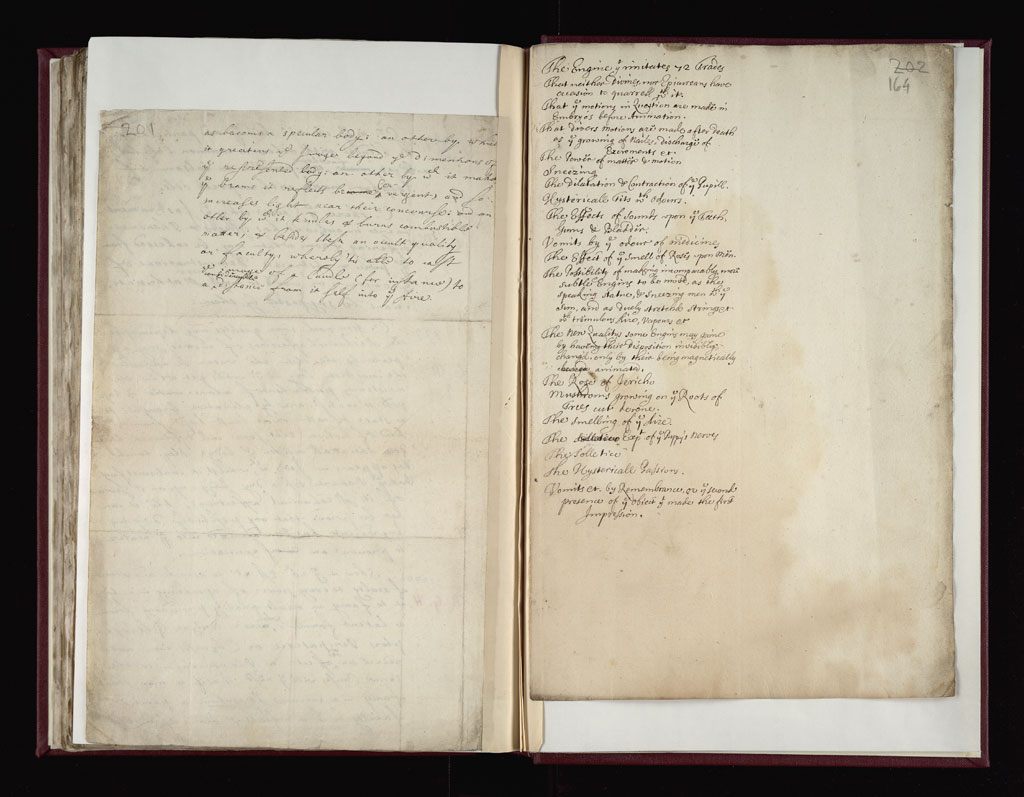 201
as becomes a specular body; an other by, which
it greatens ye Image beyond ye Dimentions of
ye represented body: an other by wch it makes
ye beams it reflects convergent, and so
increases light near their concourse: and an
other by wch it kindles & burns combustible
matter; & besides these an occult quality
or faculty, whereby 'tis able to cast
of a Candle (for instance) to
a distance from it self into ye Aire.
202
164
The Engine yt imitates 42 Trades
That neither Divines, nor Epicureans have
occasion to quarrell wth it.
That ye motions in Question are made in
Embryos before Animation.
That divers motions are made after death
as ye growing of Nails, discharge of
Excrements et.
The Power of matter & motion
Sneezing
The Dilatation & Contraction of ye Pupill.
Hystericall Fits wth Odours.
The Effects of Sounds upon ye Teeth,
Gums & Bladder.
Vomits by ye odour of medicine,
The Effect of ye Smell of Roses upon
The Possibility of making incomparably more
subtle Engins to be mov'd, as the
speaking statue, & Sneezing men by ye
Sun, and as duely stretch'd strings et
wth tremulous Aire, Vapours et
The New Qualitys some Engins may gaine
by having their disposition invisibly
chang'd only by their being magnetically
animated.
The Rose of Jericho
Mushroms growing on ye Roots of
Trees cut downe.
The smelling of ye Aire.
The Expt of ye Puppy's Nerves
The Solletico
The Hystericall Passion.
Vomits et. by Remembrance, or ye second
presence of ye Object yt made the first
Impression.